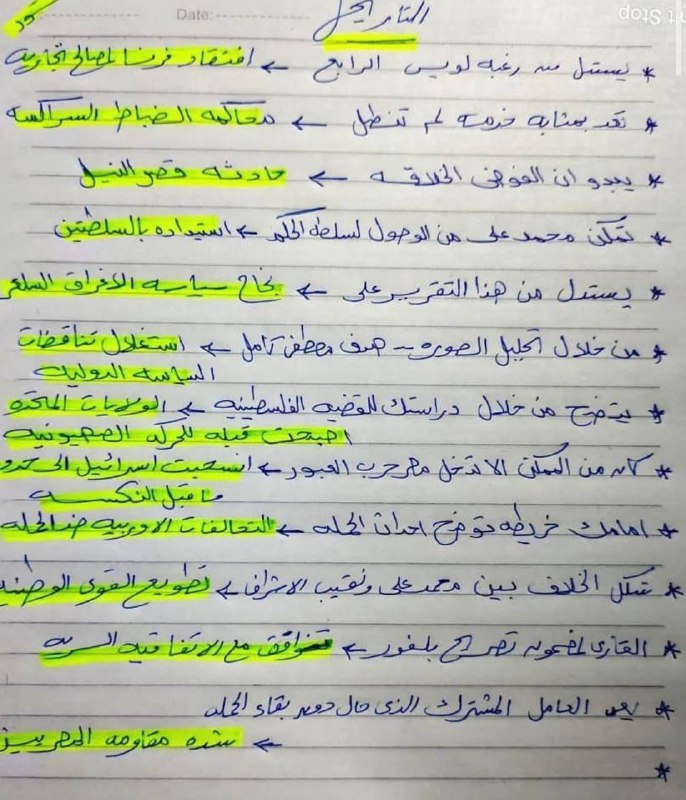 التاريخ
Date:
* يستدل من رغبة لويس الرابع ← افتقاد فرنسا لمصالح تجارية
* تعد بمثابه خدمه لم تنطل ← محاكمه الضباط الشراكسه
* يبدو ان الفوضى الخلاقه ← حادثه قصر النيل
* تمكن محمد على من الوصول لسلطة الحكم ← استبداده بالسلطتين
* يستدل من هذا التقرير على ← نجاح سياسه الاغراق السلعى
* من خلال تحليل الصوره - هدف مصطفى كامل ← استغلال تناقضات
السياسه الدوليه
* يتضح من خلال دراستك للقضيه الفلسطينيه ← الولايات المتحده
اصبحت قبله للحركه الصهيونيه
* كان من الممكن الا تدخل مصر حرب العبور ← انسحبت اسرائيل الى حدود
ما قبل النكسه
* امامك خريطه توضح احداث الحمله ← التحالفات الاوربيه ضد الحمله
* شكل الخلاف بين محمد على ونقيب الاشراف ← تطويع القوى الوطنيه
* القارئ لمضمون تصريح بلفور ← تتوافق مع الاتفاقيه السريه
* يعد العامل المشترك الذى حال دون بقاء الحمله
← شده مقاومه المصريين
*